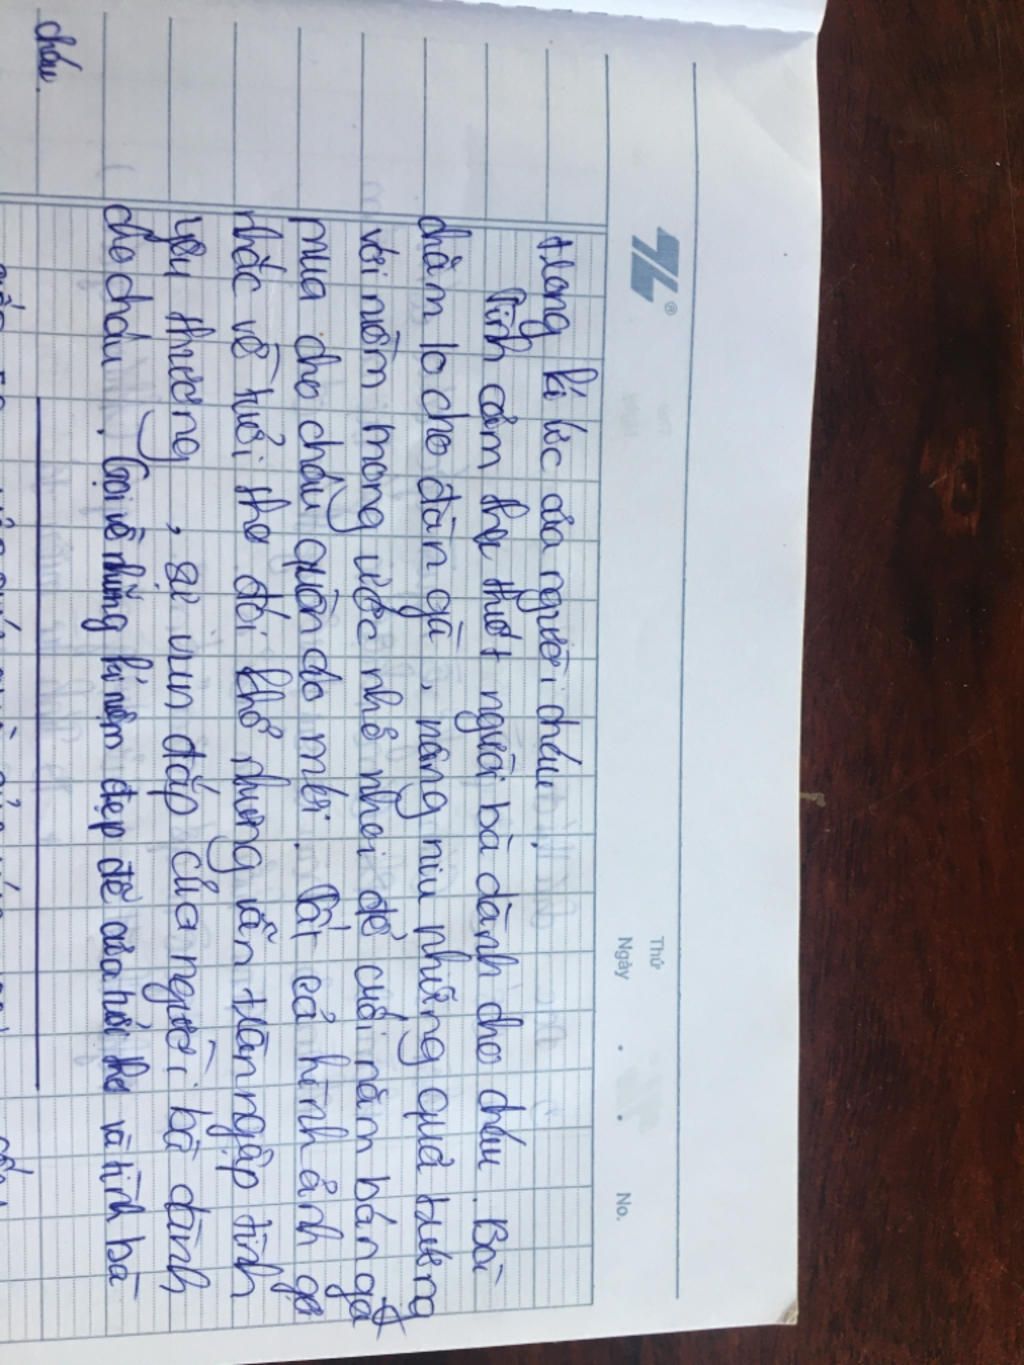 TL®
Thứ
Ngày . . No.
trong kí ức của người cháu.
Tình cảm tha thiết người bà dành cho cháu. Bà
chăm lo cho đàn gà, nâng niu những quả trứng
với niềm mong ước nhỏ nhoi để cuối năm bán gà
mua cho cháu quần áo mới. Tất cả hình ảnh gợi
nhắc về tuổi thơ đói khổ nhưng vẫn tràn ngập tình
yêu thương, sự vun đắp của người bà dành
cho cháu. Gợi về những kỉ niệm đẹp đẽ của tuổi thơ và tình bà
cháu.